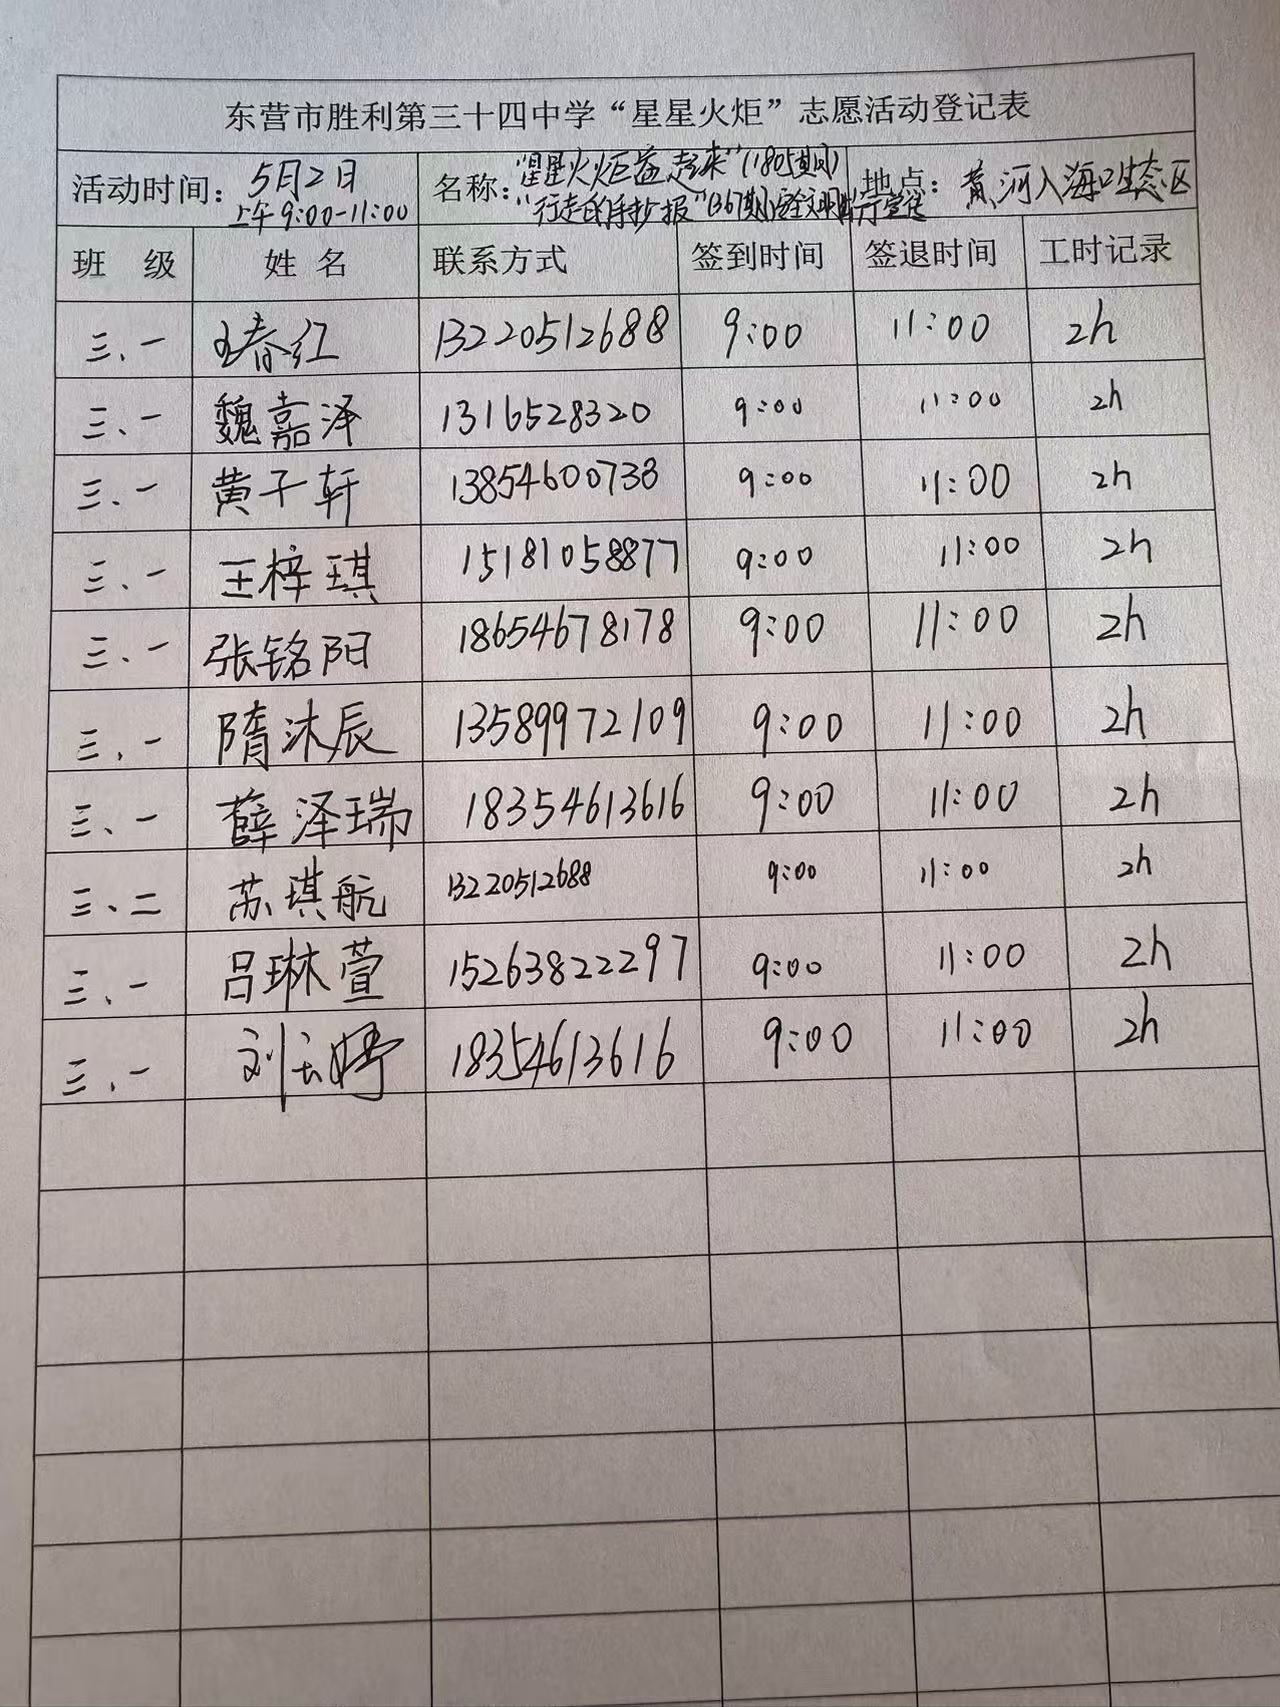 东营市胜利第三十四中学“星星火炬”志愿活动登记表
活动时间：5月2日 上午9:00-11:00 名称：“星星火炬益起来”(1805期) “行走的手抄报”(367期)安全文明出行宣传 地点：黄河入海口生态区
班 级 姓 名 联系方式 签到时间 签退时间 工时记录
三、一 王春红 13220512688 9:00 11:00 2h
三、一 魏嘉泽 1316528320 9:00 11:00 2h
三、一 黄子轩 13854600738 9:00 11:00 2h
三、一 王梓琪 15181058877 9:00 11:00 2h
三、一 张铭阳 18654678178 9:00 11:00 2h
三、一 隋沐辰 13589972109 9:00 11:00 2h
三、一 薛泽瑞 18354613616 9:00 11:00 2h
三、二 苏琪航 13220512688 9:00 11:00 2h
三、一 吕琳萱 15263822297 9:00 11:00 2h
三、一 刘云婷 18354613616 9:00 11:00 2h